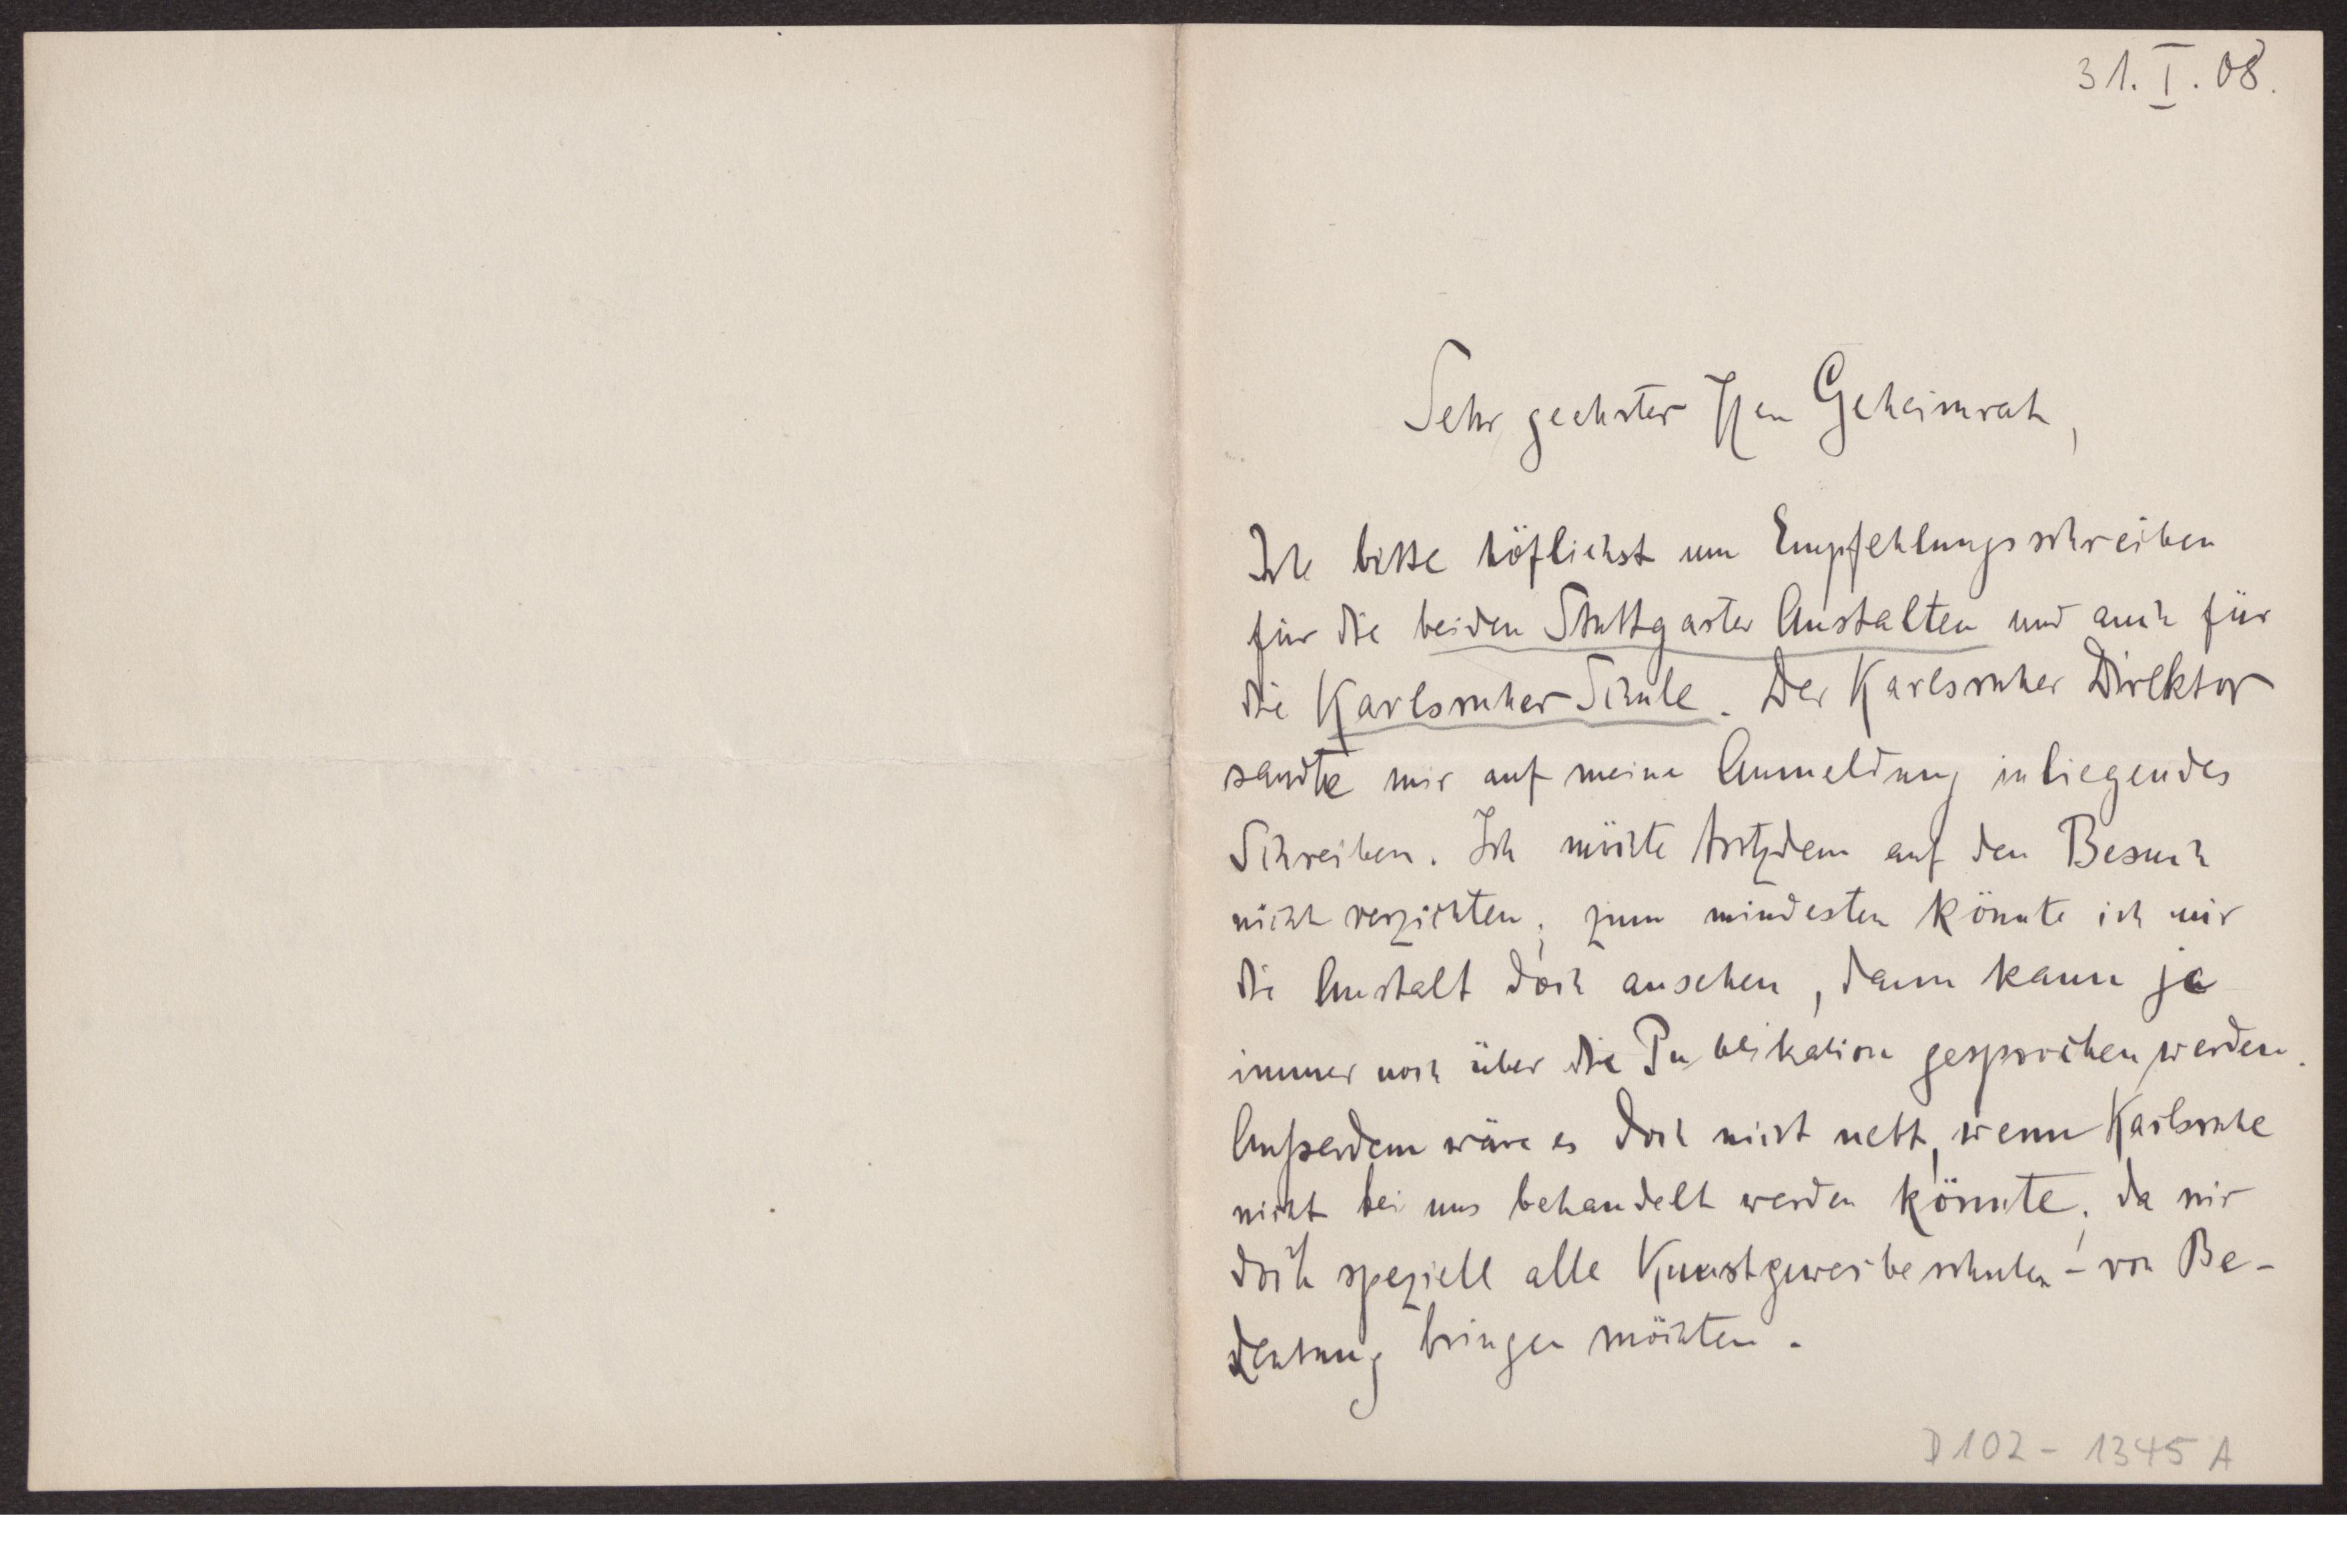 31. I. 08.
Sehr geehrter Herr Geheimrat,
Ich bitte höflichst um Empfehlungsschreiben
für die beiden Stuttgarter Anstalten und auch für
die Karlsruher Schule. Der Karlsruher Direktor
sandte mir auf meine Anmeldung inliegendes
Schreiben. Ich möchte trotzdem auf den Besuch
nicht verzichten; zum mindesten könnte ich mir
die Anstalt doch ansehen, dann kann ja
immer noch über die Publikation gesprochen werden.
Außerdem wäre es doch nicht nett, wenn Karlsruhe
nicht bei uns behandelt werden könnte, da wir
doch speziell alle Kunstgewerbeschulen – von Be-
deutung bringen möchten.
D102 - 1345 A